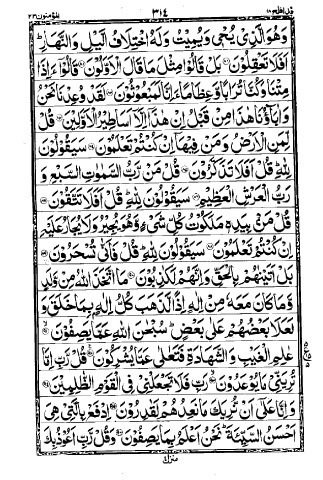 قد افلح ١٨ ٣١٤ المؤمنون ٢٣
وَهُوَ الَّذِىۡ يُحۡىٖ وَيُمِيۡتُ وَلَهُ اخۡتِلَافُ الَّيۡلِ وَالنَّهَارِؕ
اَفَلَا تَعۡقِلُوۡنَ‏ بَلۡ قَالُوۡا مِثۡلَ مَا قَالَ الۡاَوَّلُوۡنَ‏ قَالُوۡۤا ءَاِذَا
مِتۡنَا وَكُنَّا تُرَابًا وَّعِظَامًا ءَاِنَّا لَمَبۡعُوۡثُوۡنَ‏ لَقَدۡ وُعِدۡنَا نَحۡنُ
وَاٰبَآؤُنَا هٰذَا مِنۡ قَبۡلُ اِنۡ هٰذَاۤ اِلَّاۤ اَسَاطِيۡرُ الۡاَوَّلِيۡنَ‏ قُلْ
لِّمَنِ الۡاَرۡضُ وَمَنۡ فِيۡهَاۤ اِنۡ كُنۡتُمۡ تَعۡلَمُوۡنَ‏ سَيَقُوۡلُوۡنَ
لِلّٰهِ‌ؕ قُلۡ اَفَلَا تَذَكَّرُوۡنَ‏ قُلۡ مَنۡ رَّبُّ السَّمٰوٰتِ السَّبۡعِ وَ
رَبُّ الۡعَرۡشِ الۡعَظِيۡمِ‏ سَيَقُوۡلُوۡنَ لِلّٰهِ‌ؕ قُلۡ اَفَلَا تَتَّقُوۡنَ‏
قُلۡ مَنۡۢ بِيَدِهٖ مَلَكُوۡتُ كُلِّ شَىۡءٍ وَّهُوَ يُجِيۡرُ وَلَا يُجَارُ عَلَيۡهِ
اِنۡ كُنۡتُمۡ تَعۡلَمُوۡنَ‏ سَيَقُوۡلُوۡنَ لِلّٰهِ‌ؕ قُلۡ فَاَنّٰى تُسۡحَرُوۡنَ‏
بَلۡ اَتَيۡنٰهُمۡ بِالۡحَـقِّ وَاِنَّهُمۡ لَكٰذِبُوۡنَ‏ مَا اتَّخَذَ اللّٰهُ مِنۡ وَّلَدٍ
وَّمَا كَانَ مَعَهٗ مِنۡ اِلٰهٍ‌ اِذًا لَّذَهَبَ كُلُّ اِلٰهٍۢ بِمَا خَلَقَ وَ
لَعَلَا بَعۡضُهُمۡ عَلٰى بَعۡضٍ‌ؕ سُبۡحٰنَ اللّٰهِ عَمَّا يَصِفُوۡنَۙ‏
عٰلِمِ الۡغَيۡبِ وَالشَّهَادَةِ فَتَعٰلٰى عَمَّا يُشۡرِكُوۡنَ‏ قُلْ رَّبِّ اِمَّا
تُرِيَنِّىۡ مَا يُوۡعَدُوۡنَۙ‏ رَبِّ فَلَا تَجۡعَلۡنِىۡ فِى الۡقَوۡمِ الظّٰلِمِيۡنَ‏
وَاِنَّا عَلٰٓى اَنۡ نُّرِيَكَ مَا نَعِدُهُمۡ لَقٰدِرُوۡنَ‏ اِدۡفَعۡ بِالَّتِىۡ هِىَ
اَحۡسَنُ السَّيِّئَةَ‌ ؕ نَحۡنُ اَعۡلَمُ بِمَا يَصِفُوۡنَ‏ وَقُلْ رَّبِّ اَعُوۡذُ بِكَ